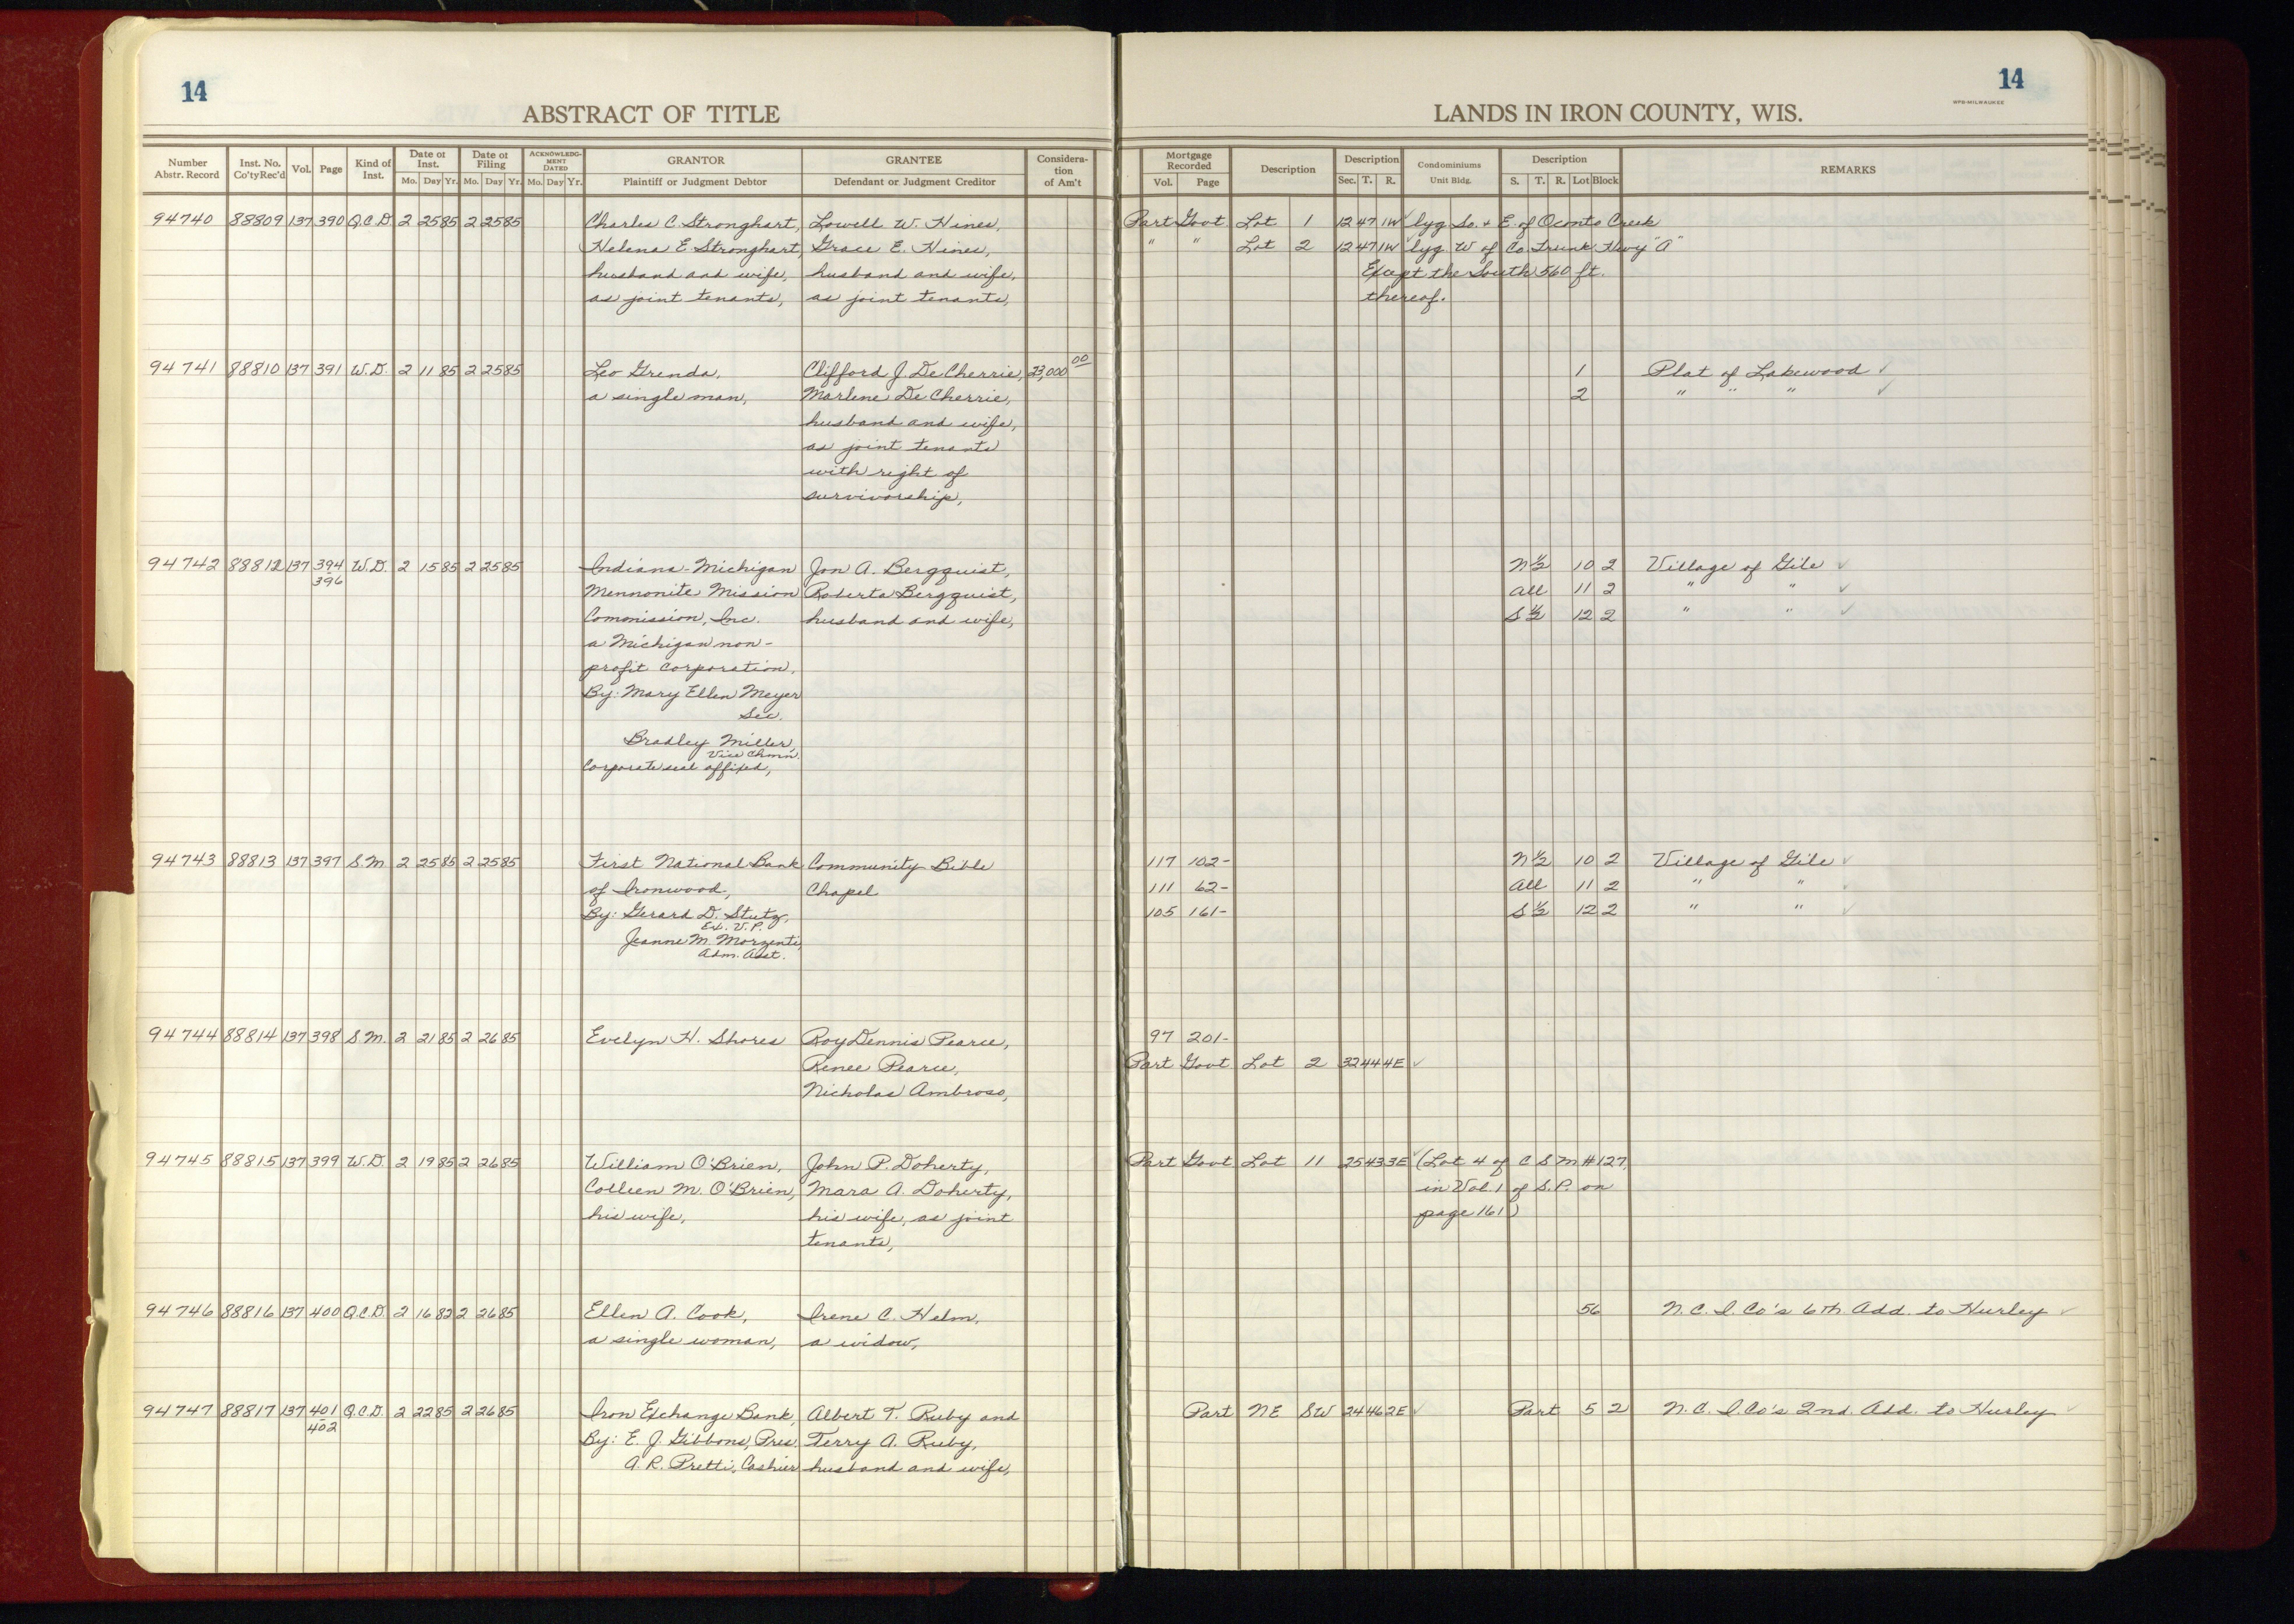 14
ABSTRACT OF TITLE
Number Abstr. Record
Inst. No. Co'ty Rec'd
Vol.
Page
Kind of Inst.
Date of Inst.
Mo. Day Yr.
Date of Filing
Mo. Day Yr.
ACKNOWLEDG-MENT DATED
Mo. Day Yr.
GRANTOR
Plaintiff or Judgment Debtor
GRANTEE
Defendant or Judgment Creditor
Considera-tion of Am't
94740 88809 137 390 Q.C.D. 2 25 85 2 25 85 Charles C. Stronghart, Lowell W. Hines,
Helena E. Stronghart, Grace E. Hines,
husband and wife, husband and wife,
as joint tenants, as joint tenants,
94741 88810 137 391 W.D. 2 11 85 2 25 85 Leo Grenda, Clifford J. De Cherrie, 23,000 00
a single man, Marlene De Cherrie,
husband and wife,
as joint tenants
with right of
survivorship,
94742 88812 137 394 W.D. 2 15 85 2 25 85 Indiana-Michigan Jon A. Bergquist,
396 Mennonite Mission Roberta Bergquist,
Commission, Inc. husband and wife,
a Michigan non-
profit corporation,
By: Mary Ellen Meyer
Sec.
Bradley Miller,
Vice Chmn.
Corporate seal affixed,
94743 88813 137 397 S.M. 2 25 85 2 25 85 First National Bank Community Bible
of Ironwood, Chapel
By: Gerard D. Stutz,
Ex. V.P.
Jeanne M. Morzenti,
Adm. Asst.
94744 88814 137 398 S.M. 2 21 85 2 26 85 Evelyn H. Shores Roy Dennis Pearce,
Renee Pearce,
Nicholas Ambroso,
94745 88815 137 399 W.D. 2 19 85 2 26 85 William O'Brien, John P. Doherty,
Colleen M. O'Brien, Mara A. Doherty,
his wife, his wife, as joint
tenants,
94746 88816 137 400 Q.C.D. 2 16 82 2 26 85 Ellen A. Cook, Irene C. Helm,
a single woman, a widow,
94747 88817 137 401 Q.C.D. 2 22 85 2 26 85 Iron Exchange Bank, Albert T. Ruby and
402 By: E. J. Gibbons, Pres. Terry A. Ruby,
A. R. Pretti, Cashier husband and wife,
14
WPB-MILWAUKEE
LANDS IN IRON COUNTY, WIS.
Mortgage Recorded
Vol. Page
Description
Description
Sec. T. R.
Condominiums
Unit Bldg.
Description
S. T. R. Lot Block
REMARKS
Part Govt Lot 1 12 47 1W lyg So. & E. of Oconto Creek
" " Lot 2 12 47 1W lyg W of Co. Trunk Hwy "A"
Except the South 560 ft.
thereof.
1 Plat of Lakewood ✓
2 " " " ✓
N½ 10 2 Village of Gile ✓
All 11 2 " " ✓
S½ 12 2 " " ✓
117 102- N½ 10 2 Village of Gile ✓
111 62- All 11 2 " " ✓
105 161- S½ 12 2 " " ✓
97 201-
Part Govt Lot 2 32 44 4E ✓
Part Govt Lot 11 25 43 3E ✓ (Lot 4 of C S M #127,
in Vol. 1 of S.P. on
page 161)
56 N.C.I. Co's 6th Add. to Hurley ✓
Part NE SW 24 46 2E ✓ Part 5 2 N.C.I. Co's 2nd. Add. to Hurley ✓